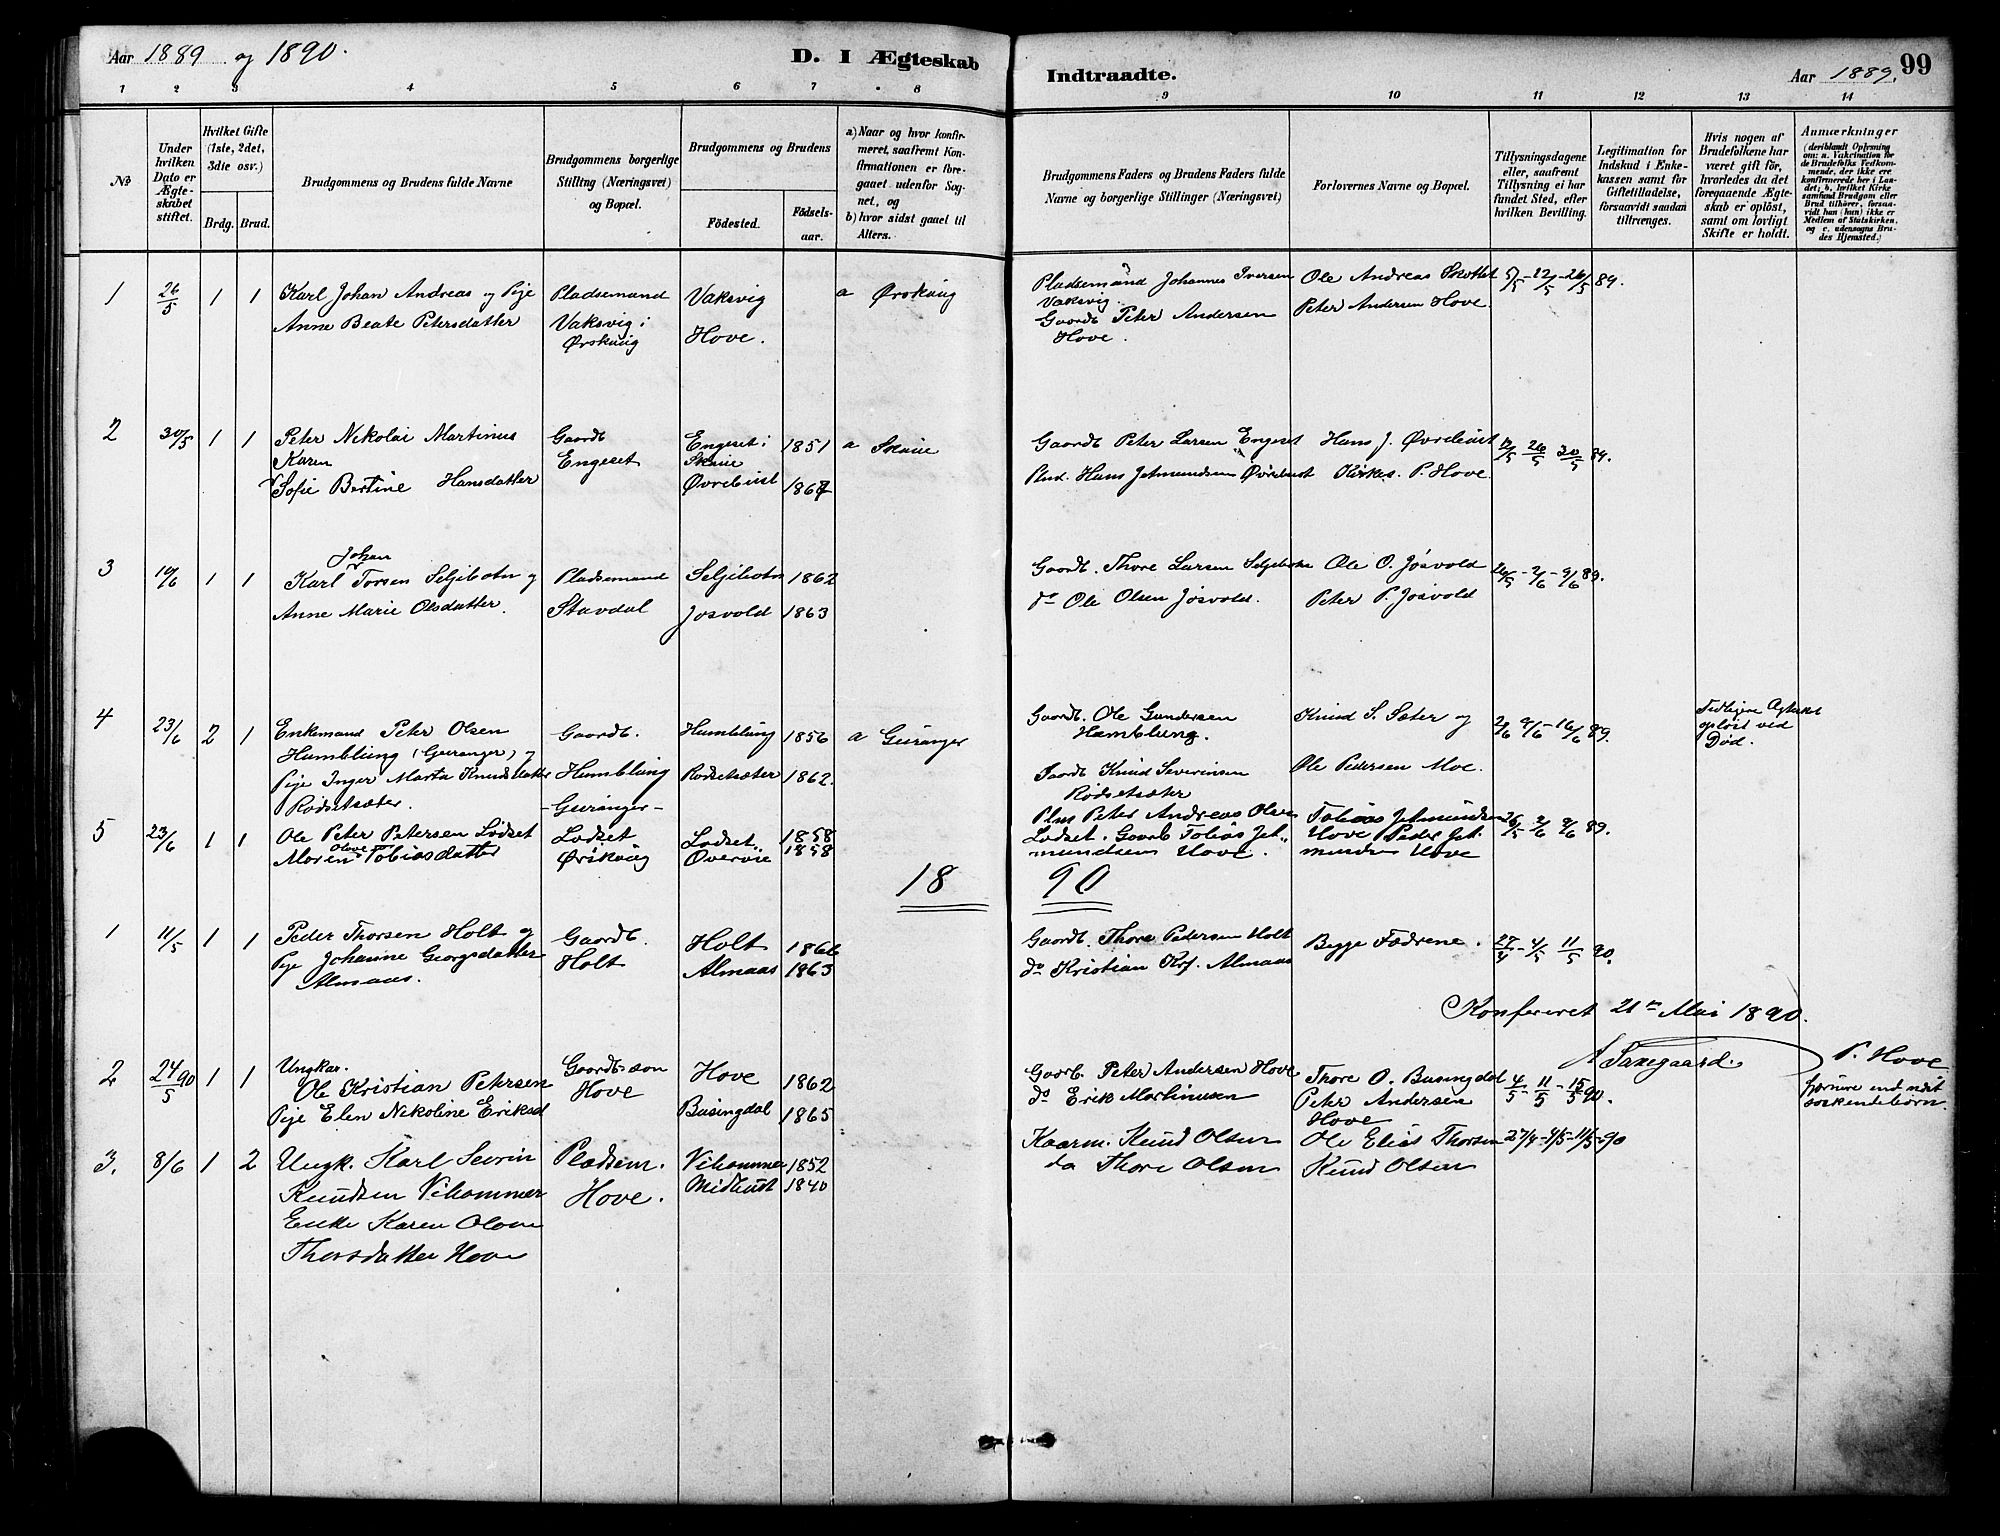 Aar 1889 og 1890.
D. I Ægteskab
Indtraadte.
Aar 1889.
99
1 2 3 4 5 6 7 8 9 10 11 12 13 14
No
Under hvilken Dato er Ægteskabet stiftet.
Hvilket Gifte (1ste, 2det, 3die osv.)
Brdg. Brud.
Brudgommens og Brudens fulde Navne
Brudgommens borgerlige Stilling (Næringsvei) og Bopæl.
Brudgommens og Brudens
Födested.
Födselsaar.
a) Naar og hvor konfirmeret, saafremt Konfirmationen er foregaaet udenfor Sognet, og
b) hvor sidst gaaet til Alters.
Brudgommens Faders og Brudens Faders fulde Navne og borgerlige Stillinger (Næringsvei)
Forlovernes Navne og Bopæl.
Tillysningsdagene eller, saafremt Tillysning ei har fundet Sted, efter hvilken Bevilling.
Legitimation for Indskud i Enkekassen samt for Giftetilladelse, forsaavidt saadan tiltrænges.
Hvis nogen af Brudefolkene har været gift för, hvorledes da det foregaaende Ægteskab er oplöst, samt om lovligt Skifte er holdt.
Anmærkninger (deriblandt Oplysning om: a. Vakcination for de Brudefolks Vedkommende, der ikke ere konfirmerede her i Landet; b. hvilket Kirkesamfund Brudgom eller Brud tilhører, forsaavidt han (hun) ikke er Medlem af Statskirken, og c. udensogns Brudes Hjemsted.)
1 26/5 1 1 Karl Johan Andreas og Pige
Anne Beate Petersdatter
Pladsemand
Vaksvig i
Ørskoug
Vaksvig
Hove.
a Ørskoug
Pladsemand Johannes Iversen
Vaksvig.
Gaardb Peter Andersen
Hove.
Ole Andreas
Peter Andersen Hove.
5/5 - 12/5 - 26/5 89.
2 30/5 1 1 Peter Nikolai Martinus
Karen
Sofie Bertine Hansdatter
Gaardb
Engeset
Engeset i
Øvrebust
1851
a
Gaardb Peter Larsen Engeset
Hans Jetmundsen Øvrebust
Hans J. Øvrebust
Kirkes. P. Hove.
12/5 26/5 30/5 89.
3 10/6 1 1 Johan
Karl Torsen Seljebotn og
Anne Marie Olsdatter.
Pladsemand
Stavdal
Seljebotn 1862
Josvold 1863
Gaardb. Thore Larsen
do Ole Olsen Josvold.
Ole O. Josvold
Peter P. Josvold
26/5 - 2/6 - 9/6 89.
4 23/6 2 1 Enkemand Peter Olsen
Humblung (Geiranger) og
Pige Inger Marta Knudsdatter
Rødsetsæter.
Gaardb.
Humblung
-Geiranger-
Humblung 1856
Rødsetsæter 1862.
a Geiranger
Gaardb. Ole Gundersen
Hamblung.
Gaardb Knud Severinsen
Rødsetsæter
Knud S. Sæter og
Ole Pedersen Moe.
2/6 9/6 - 16/6 89.
Tidligere
opløst ved
Død.
5 23/6 1 1 Ole Peter Petersen Lødset
Olave
Tobiasdatter
Lødset
Ørskoug
Lødset 1858
1858
Peter Andreas
Lødset. Gaardb Tobias Jetmundsen Hove.
Tobias Jetmundsen
Hove Peder Jetmundsen Hove
26/5 2/6 9/6 89.
18 90
1 11/5 1 1 Peder Thorsen Holt og
Pige Johanne Georgsdatter
Almaas.
Gaardb.
Holt
Holt 1866
Almaas 1863
Gaardb. Thore Pedersen Holt
do Kristian Almaas
Begge Fædrene.
27/4 - 4/5 11/5 90.
Konfereret 21de Mai 1890.
Saxegaard.
P. Hove
2 24/5 90 1 1 Ungkar.
Ole Kristian Petersen
Pige Elen Nikoline Eriksd
Gaardb-søn
Hove
Hove 1862
Busingdal 1865
Gaardb. Peter Andersen Hove
do Erik Martinusen
Thore O. Busingdal
Peter Andersen
Hove
4/5 - 11/5 - 15/5 90.
fjernere end næst
søskendebørn.
3. 8/6 1 2 Ungk. Karl Sevrin
Knudsen Vihammer
Enke Karen Olave
Thorsdatter Hove
Pladsem.
Hove.
Vihammer 1852
Midhust 1840
Kaarm. Knud Olsen
do Thore Olsen
Ole Elias Thorsen
Knud Olsen
27/4 - 4/5 - 11/5 - 90